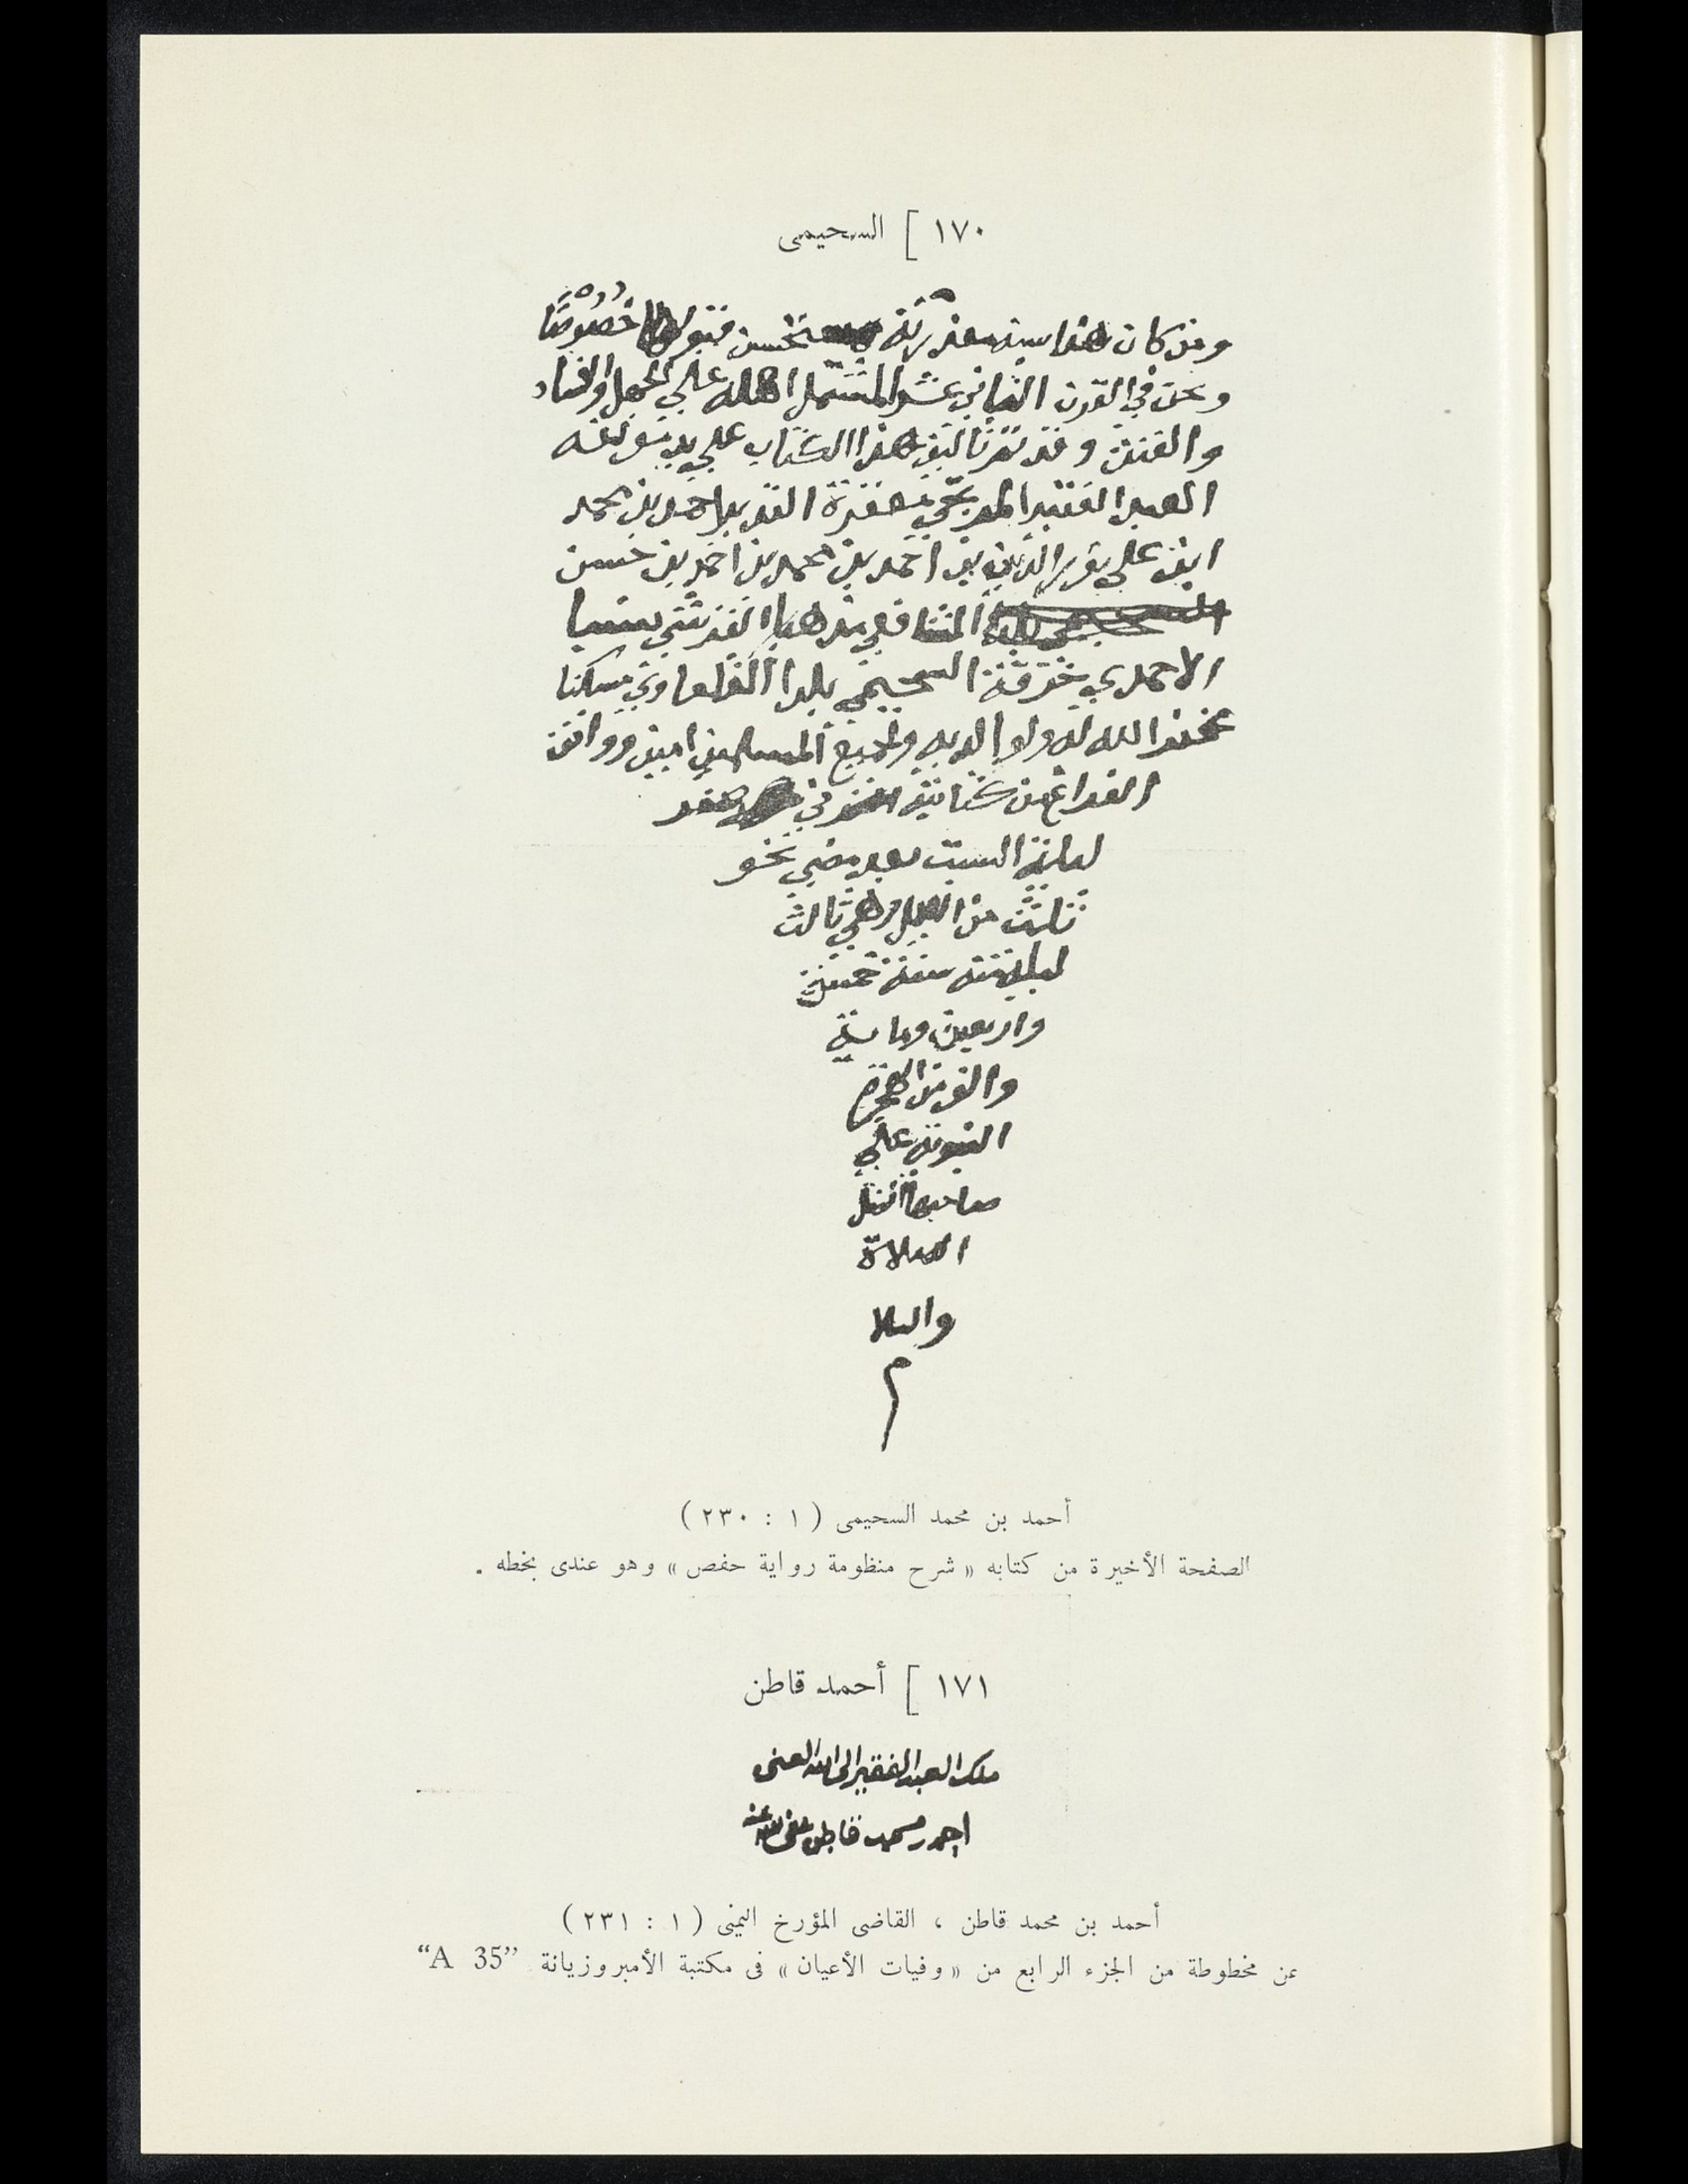 ١٧٠ ] السحيمى
ومن كان هذا سبيله معذرته يستحسن قبولها خصوصًا
ونحن في القرن الثاني عشر المشتمل اهله علي الجهل والفساد
والفتن وقد تم تاليف هذا الكتاب علي يد مؤلفه
العبد الفقير المرتجي مغفرة القدير احمد بن محمد
ابن علي نور الدين بن احمد بن محمد بن احمد بن حسن
الشافعي مذهبا القرشي نسبا
الاحمدي خرقة السحيمي بلدا القلعاوي مسكنا
غفر الله له ولوالديه ولجميع المسلمين امين ووافق
الفراغ من كتابته في
ليلة السبت بعد مضي نحو
ثلث من الليل وهي ثالث
ليلة سنة خمسة
واربعين وماية
والف من الهجرة
النبوية علي
صاحبها افضل
الصلاة
والسلا
م
أحمد بن محمد السحيمى ( ١ : ٢٣٠ )
الصفحة الأخيرة من كتابه « شرح منظومة رواية حفص » وهو عندى بخطه .
١٧١ ] أحمد قاطن
ملك العبد الفقير الى الله الغنى
احمد بن محمد قاطن عفى الله عنه
أحمد بن محمد قاطن ، القاضى المؤرخ اليمنى ( ١ : ٢٣١ )
عن مخطوطة من الجزء الرابع من « وفيات الأعيان » فى مكتبة الأمبروزيانة “A 35”